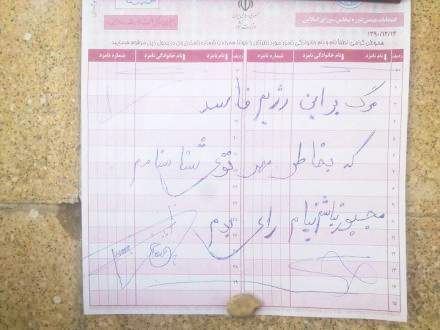 انتخابات نهمین دوره مجلس شورای اسلامی
۱۳۹۰/۱۲/۱۲
هموطن گرامی لطفا نام و نام خانوادگی نامزد مورد نظرتان را خوانا همراه با شماره نامزدی وی در جدول ذیل مرقوم فرمایید
ردیف نام خانوادگی نامزد شماره نامزد ردیف نام خانوادگی نامزد شماره نامزد
مرگ بر این رژیم فاسد
که بخاطر مهر توی شناسنامم
مجبور باشم بیام رای بدم